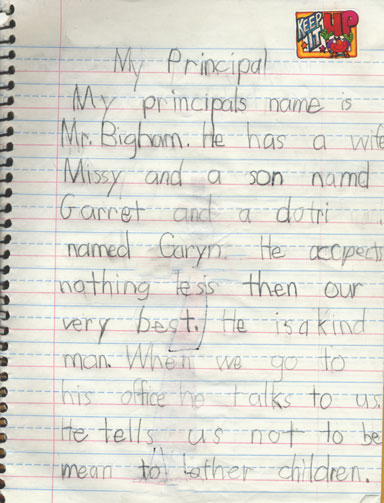 KEEP IT UP
My Principal
My principals name is
Mr. Bigham. He has a wife
Missy and a son namd
Garret and a dotri
named Garyn. He accpects
nothing less then our
very best. He is a kind
man. When we go to
his office he talks to us.
He tells us not to be
mean to other children.